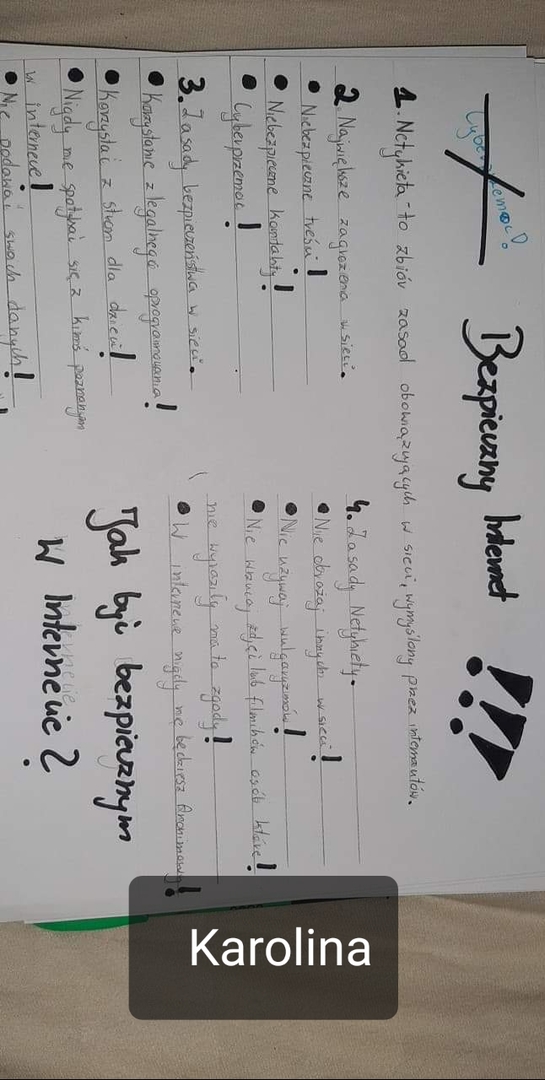 Cyberprzemoc!
Bezpieczny Internet !!!
1. Netykieta - to zbiór zasad obowiązujących w sieci, wymyślony przez internautów.
2. Największe zagrożenia w sieci.
• Niebezpieczne treści!
• Niebezpieczne kontakty!
• Cyberprzemoc!
3. Zasady bezpieczeństwa w sieci.
• Korzystanie z legalnego oprogramowania!
• Korzystać z stron dla dzieci!
• Nigdy nie spotykać się z kimś poznanym
w internecie!
• Nie podawać swoich danych!
4. Zasady Netykiety.
• Nie obrażaj innych w sieci!
• Nie używaj wulgaryzmów!
• Nie wrzucaj zdjęć lub filmików osób które!
nie wyraziły na to zgody!
• W internecie nigdy nie będziesz Anonimowy!
Jak być bezpiecznym
W Internecie?
Karolina